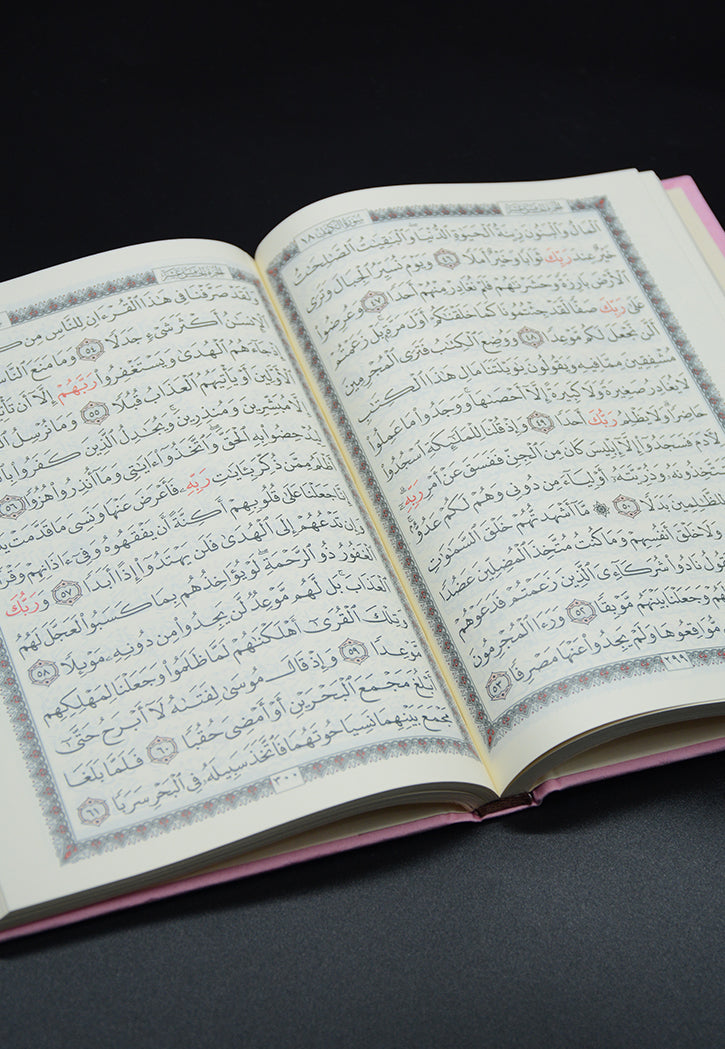 سُورَةُ الكَهْفِ ١٨
الجُزْءُ الخَامِسَ عَشَرَ
ٱلْمَالُ وَٱلْبَنُونَ زِينَةُ ٱلْحَيَوٰةِ ٱلدُّنْيَا وَٱلْبَٰقِيَٰتُ ٱلصَّٰلِحَٰتُ
خَيْرٌ عِندَ رَبِّكَ ثَوَابًا وَخَيْرٌ أَمَلًا ٤٦ وَيَوْمَ نُسَيِّرُ ٱلْجِبَالَ وَتَرَى
ٱلْأَرْضَ بَارِزَةً وَحَشَرْنَٰهُمْ فَلَمْ نُغَادِرْ مِنْهُمْ أَحَدًا ٤٧ وَعُرِضُوا۟
عَلَىٰ رَبِّكَ صَفًّا لَّقَدْ جِئْتُمُونَا كَمَا خَلَقْنَٰكُمْ أَوَّلَ مَرَّةٍۭ بَلْ زَعَمْتُمْ
أَلَّن نَّجْعَلَ لَكُم مَّوْعِدًا ٤٨ وَوُضِعَ ٱلْكِتَٰبُ فَتَرَى ٱلْمُجْرِمِينَ
مُشْفِقِينَ مِمَّا فِيهِ وَيَقُولُونَ يَٰوَيْلَتَنَا مَالِ هَٰذَا ٱلْكِتَٰبِ
لَا يُغَادِرُ صَغِيرَةً وَلَا كَبِيرَةً إِلَّآ أَحْصَىٰهَا وَوَجَدُوا۟ مَا عَمِلُوا۟
حَاضِرًا وَلَا يَظْلِمُ رَبُّكَ أَحَدًا ٤٩ وَإِذْ قُلْنَا لِلْمَلَٰٓئِكَةِ ٱسْجُدُوا۟
لِءَادَمَ فَسَجَدُوٓا۟ إِلَّآ إِبْلِيسَ كَانَ مِنَ ٱلْجِنِّ فَفَسَقَ عَنْ أَمْرِ رَبِّهِۦٓ
وَذُرِّيَّتَهُۥٓ أَوْلِيَآءَ مِن دُونِى وَهُمْ لَكُمْ عَدُوٌّۢ
لِلظَّٰلِمِينَ بَدَلًا ٥٠ مَّآ أَشْهَدتُّهُمْ خَلْقَ ٱلسَّمَٰوَٰتِ
وَلَا خَلْقَ أَنفُسِهِمْ وَمَا كُنتُ مُتَّخِذَ ٱلْمُضِلِّينَ عَضُدًا
نَادُوا۟ شُرَكَآءِىَ ٱلَّذِينَ زَعَمْتُمْ فَدَعَوْهُمْ
وَجَعَلْنَا بَيْنَهُم مَّوْبِقًا ٥٢ وَرَءَا ٱلْمُجْرِمُونَ
مُّوَاقِعُوهَا وَلَمْ يَجِدُوا۟ عَنْهَا مَصْرِفًا ٥٣
٢٩٩
الجُزْءُ الخَامِسَ عَشَرَ
وَلَقَدْ صَرَّفْنَا فِى هَٰذَا ٱلْقُرْءَانِ لِلنَّاسِ مِن
ٱلْإِنسَٰنُ أَكْثَرَ شَىْءٍ جَدَلًا ٥٤ وَمَا مَنَعَ ٱلنَّاسَ
إِذْ جَآءَهُمُ ٱلْهُدَىٰ وَيَسْتَغْفِرُوا۟ رَبَّهُمْ إِلَّآ أَن
ٱلْأَوَّلِينَ أَوْ يَأْتِيَهُمُ ٱلْعَذَابُ قُبُلًا ٥٥ وَمَا نُرْسِلُ
إِلَّا مُبَشِّرِينَ وَمُنذِرِينَ وَيُجَٰدِلُ ٱلَّذِينَ كَفَرُوا۟
لِيُدْحِضُوا۟ بِهِ ٱلْحَقَّ وَٱتَّخَذُوٓا۟ ءَايَٰتِى وَمَآ أُنذِرُوا۟ هُزُوًا ٥٦
أَظْلَمُ مِمَّن ذُكِّرَ بِـَٔايَٰتِ رَبِّهِۦ فَأَعْرَضَ عَنْهَا وَنَسِىَ مَا قَدَّمَتْ
إِنَّا جَعَلْنَا عَلَىٰ قُلُوبِهِمْ أَكِنَّةً أَن يَفْقَهُوهُ وَفِىٓ ءَاذَانِهِمْ
وَإِن تَدْعُهُمْ إِلَى ٱلْهُدَىٰ فَلَن يَهْتَدُوٓا۟ إِذًا أَبَدًا ٥٧ وَرَبُّكَ
ٱلْغَفُورُ ذُو ٱلرَّحْمَةِ لَوْ يُؤَاخِذُهُم بِمَا كَسَبُوا۟ لَعَجَّلَ لَهُمُ
ٱلْعَذَابَ بَل لَّهُم مَّوْعِدٌ لَّن يَجِدُوا۟ مِن دُونِهِۦ مَوْئِلًا ٥٨
وَتِلْكَ ٱلْقُرَىٰٓ أَهْلَكْنَٰهُمْ لَمَّا ظَلَمُوا۟ وَجَعَلْنَا لِمَهْلِكِهِم
مَّوْعِدًا ٥٩ وَإِذْ قَالَ مُوسَىٰ لِفَتَىٰهُ لَآ أَبْرَحُ حَتَّىٰٓ
أَبْلُغَ مَجْمَعَ ٱلْبَحْرَيْنِ أَوْ أَمْضِىَ حُقُبًا ٦٠ فَلَمَّا بَلَغَا
مَجْمَعَ بَيْنِهِمَا نَسِيَا حُوتَهُمَا فَٱتَّخَذَ سَبِيلَهُۥ فِى ٱلْبَحْرِ سَرَبًا ٦١
٣٠٠